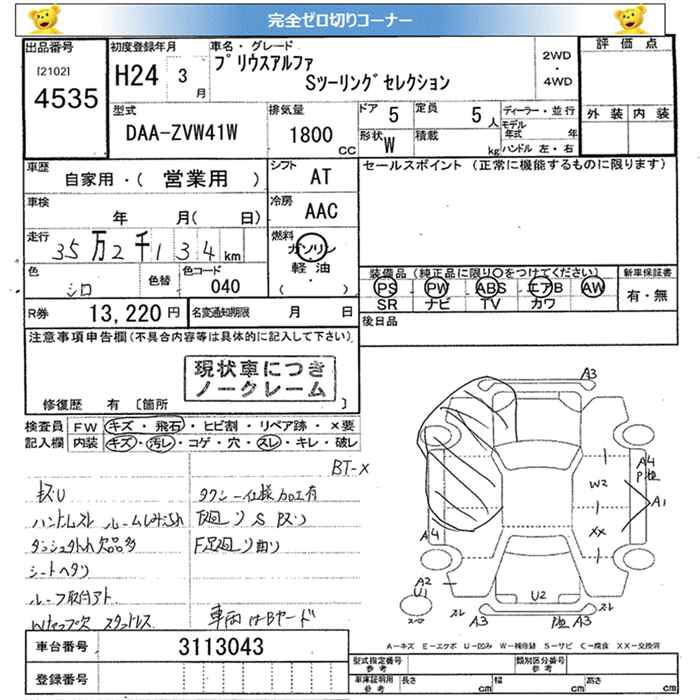 完全ゼロ切りコーナー
出品番号
[2102]
4535
初度登録年月
H24 3月
車名・グレード
プリウスアルファ
Sツーリングセレクション
2WD
・
4WD
評価点
外装 内装
型式
DAA-ZVW41W
排気量
1800 CC
ドア 5
定員 5人
形状 W
積載 kg
ディーラー・並行
モデル年式 年
ハンドル 左・右
車歴
自家用・( 営業用 )
シフト
AT
セールスポイント (正常に機能するものに限ります)
車検
年 月( 日)
冷房
AAC
走行
35万2千134km
燃料
ガソリン
軽油
( ・ )
色
シロ
色替
色コード
040
装備品(純正品に限り○をつけてください)
PS PW ABS エアB AW
SR ナビ TV カワ
新車保証書
有・無
R券 13,220円
名変通知期限 月 日
後日品
注意事項申告欄(不具合内容等は具体的に記入して下さい)
現状車につき
ノークレーム
修復歴 有 〔箇所 〕
検査員
記入欄
FW キズ・飛石・ヒビ割・リペア跡・×要
内装 キズ・汚レ・コゲ・穴・スレ・キレ・破レ
BT-X
キズU
タクシー仕様加工有
ハンドルスレ ルームしみ汚れ
下廻りSパリ
ダッシュ
欠品多
F足廻り曲り
シートヘタリ
ルーフ取付アト
Wキャップ欠 スタッドレス
車両はBヤード
A3
A4
W2
A1
XX
A4
A2
U1
U2
スレ
A3
A3
スレ
A-キズ E-エクボ U-凹み W-補修跡 S-サビ C-腐食 XX-交換済
車台番号 3113043
登録番号
型式指定番号
参考
類別区分番号
参考
車庫証明用
参考
長さ cm
幅 cm
高さ cm